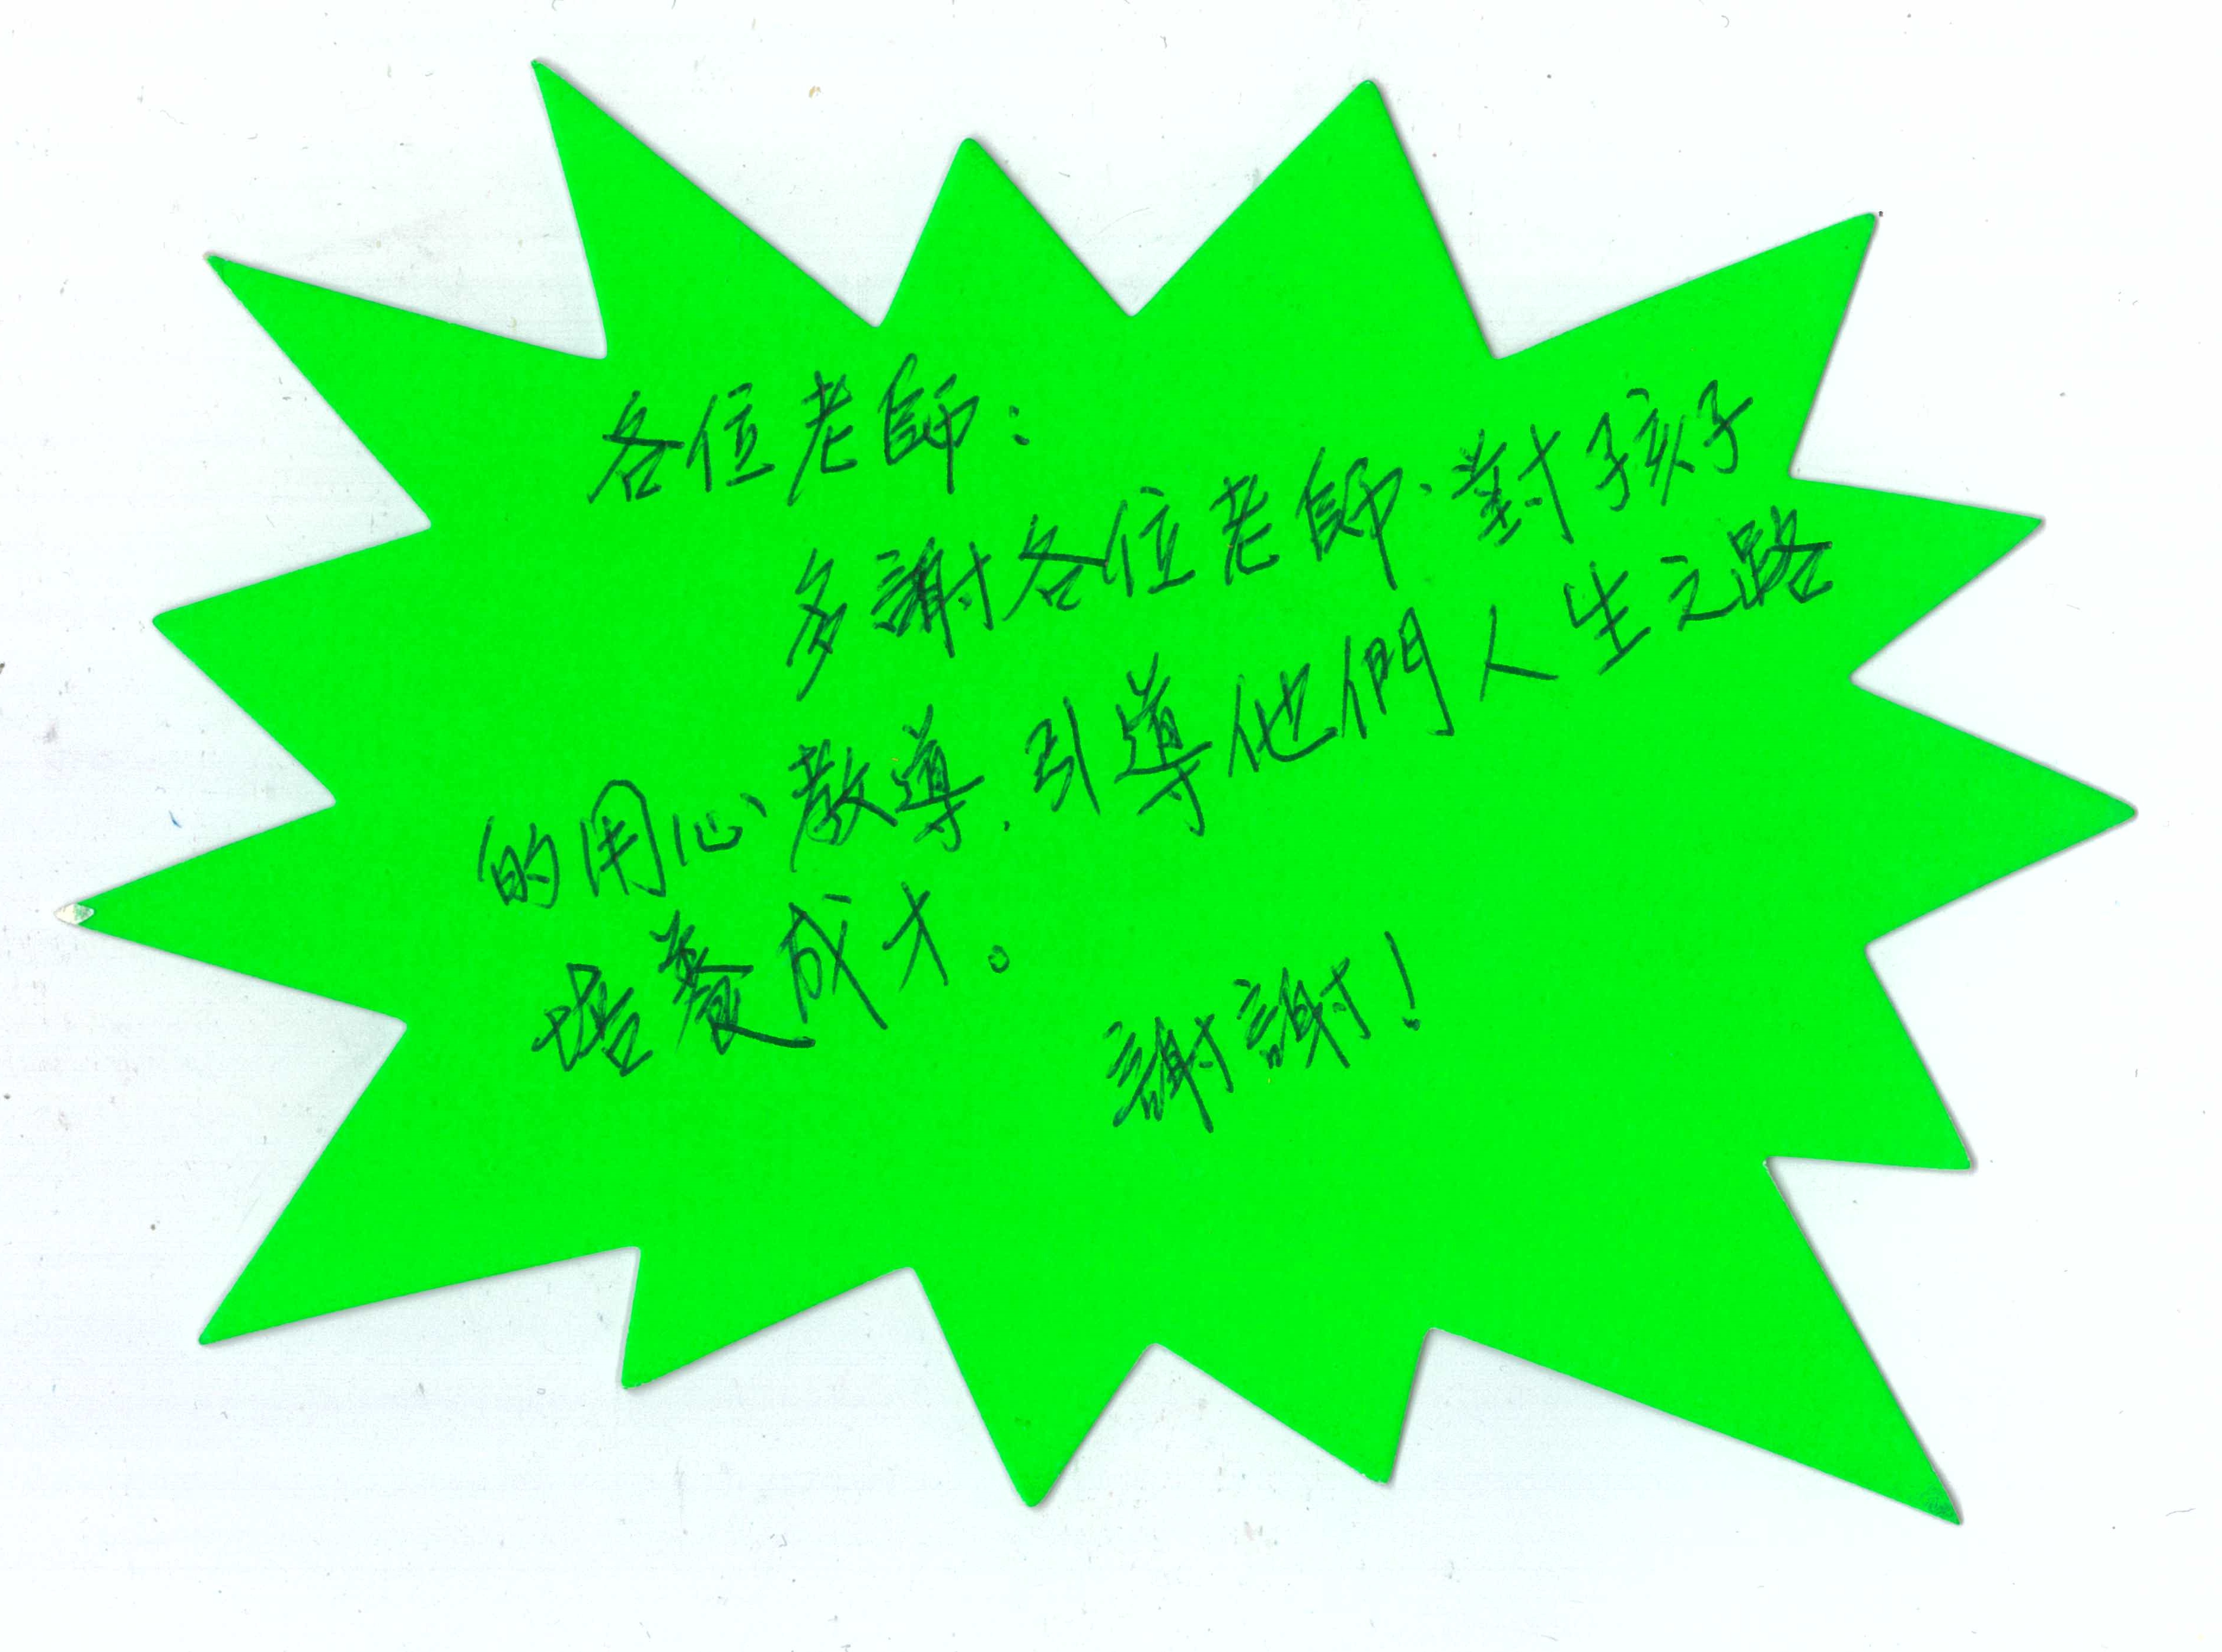 各位老師：
多謝各位老師.對孩子
的用心教導.引導他們人生之路
培養成才。
謝謝！